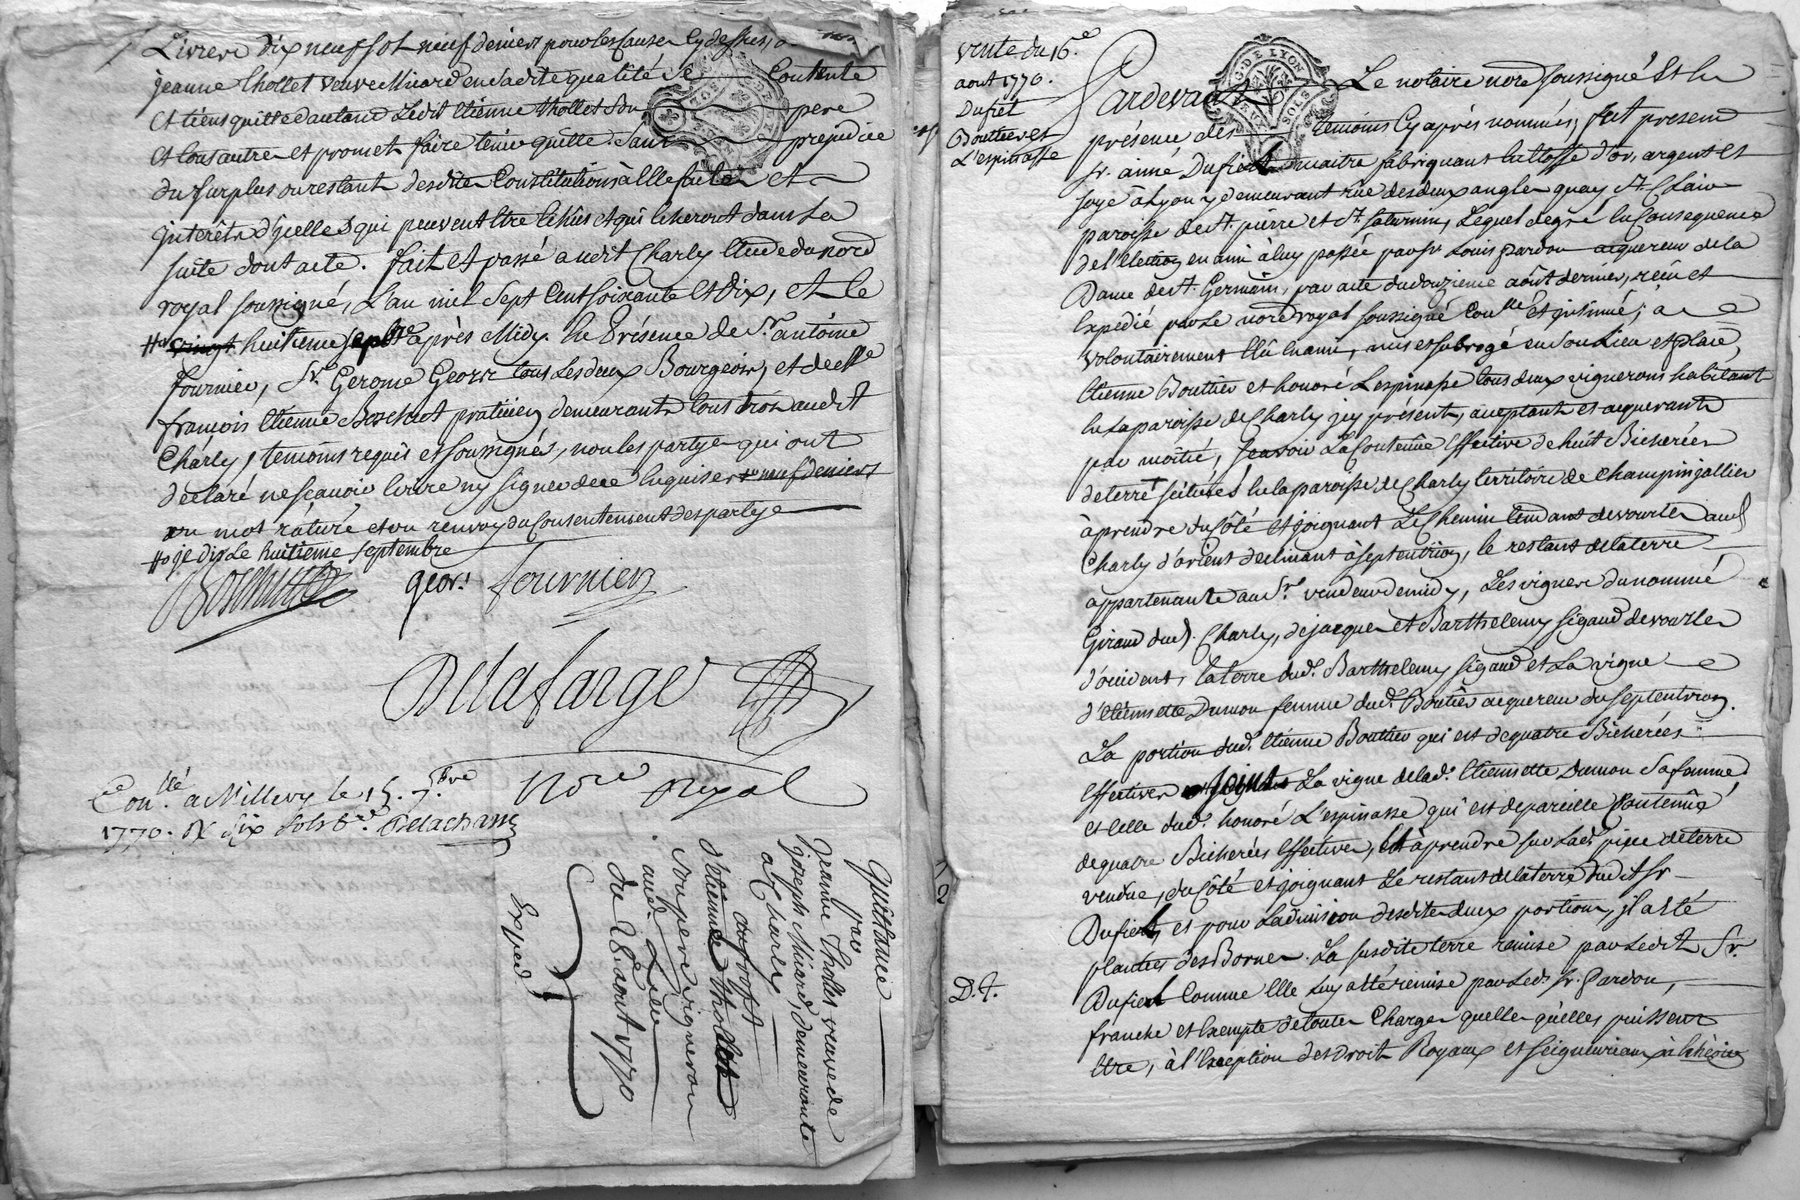 Livres dix neuf sol neuf deniers pour les causes cy dessus,
jeanne thollet veuve Miard en sadite qualité se Contente
et tiens quitte d'autant Ledit Etienne thollet son pere
et tous autres et promet faire tenir quitte. Sans prejudice
du surplus ou restant desdites Constitutions à Elle faites et
interêts d'ycelles qui peuvent être Echus et qui Echeront dans La
suite dont acte. fait et passé audit Charly Etude du nore
royal soussigné, L'an mil Sept Cent soixante et dix, et le
huitieme sepbre après Midy. En Présence de Sr. antoine
fournier, Sr. Gerome Geors tous Les deux Bourgeois, et de
françois Etienne Boschut praticien demeurants tous trois audit
Charly, temoins requis et soussignés, non les partyes qui ont
déclaré ne sçavoir Ecrire ny signer de ce Enquises neuf deniers
un mot râturé et un renvoy du Consentement des partyes
je dis Le huitieme septembre
Boschut geors fournier
Delafarge
Nore Royal
Conllé a Millery le 15. 7bre
1770. R six sols Delachans
Quittance
par
jeanne Thollet veuve de
joseph Miard, demeurante
a Charly
au proffit
d'Etienne thollet
Son pere vigneron
aud. Lieu
du 28 aout 1770
Exped.
vente du 16e
aout 1770.
Dufiet
Bouttier et
L'espinasse
G. DE LYON
SOLS
Pardevant Le notaire nore soussigné Et En
présence des temoins Cy après nommés, fut present
sr. aimé Dufiet maitre fabriquant En étoffe d'or, argent et
soye à Lyon y demeurant rüe des deux angles quay St. Clair
paroisse de St. pierre et St. saturnin, Lequel de gré En Consequence
de l'Election en ami à luy passée par sr Louis Pardon acquereur de la
Dame de St. Germain, par acte du douzieme aôut dernier, reçu et
Expedié par Le nore royal soussigné Conllé et insinué; a
volontairement Elû En ami, mis et subrogé en son Lieu et place,
Etienne Bouttier et honoré Lespinasse tous deux vignerons habitant
En La paroisse de Charly icy présent, acceptants et acquerants
par moitié, sçavoir La Contenüe Effective de huit Bicherées
de terre scituées En la paroisse de Charly territoire de Champinjallier
à prendre du Côté et joignant Le Chemin tendant de vourles aud
Charly d'orient declinant à septentrion, le restant de la terre
appartenante au Sr. vendeur de midy, Les vignes du nommé
Giraud dud. Charly, de jacques et Barthelemy Sigaud de vourles
d'occident, la terre dud. Barthelemy Sigaud et La vigne
d'Etiennette Dumon femme dud. Boutier acquereur du septentrion.
La portion dud. Etienne Bouttier qui est de quatre Bicherées
Effectives joint La vigne de lad. Etiennette Dumon Sa femme,
et Celle dud. honoré L'espinasse qui est de pareille Contenüe
de quatre Bicherées Effectives, Est à prendre sur Lad. piece de terre
vendue, du Côté et joignant Le restant de la terre dudit Sr
Dufiet, et pour La division desdites deux portions, il a été
plantés des Bornes. La susdite terre remise par Ledit Sr.
D. f.
Dufiet Comme Elle luy a été remise par Led. Sr. Pardon,
franche et Exempte de toutes Charges quelles qu'elles puissent
être, à l'Exception des Droits Royaux et seigneuriaux